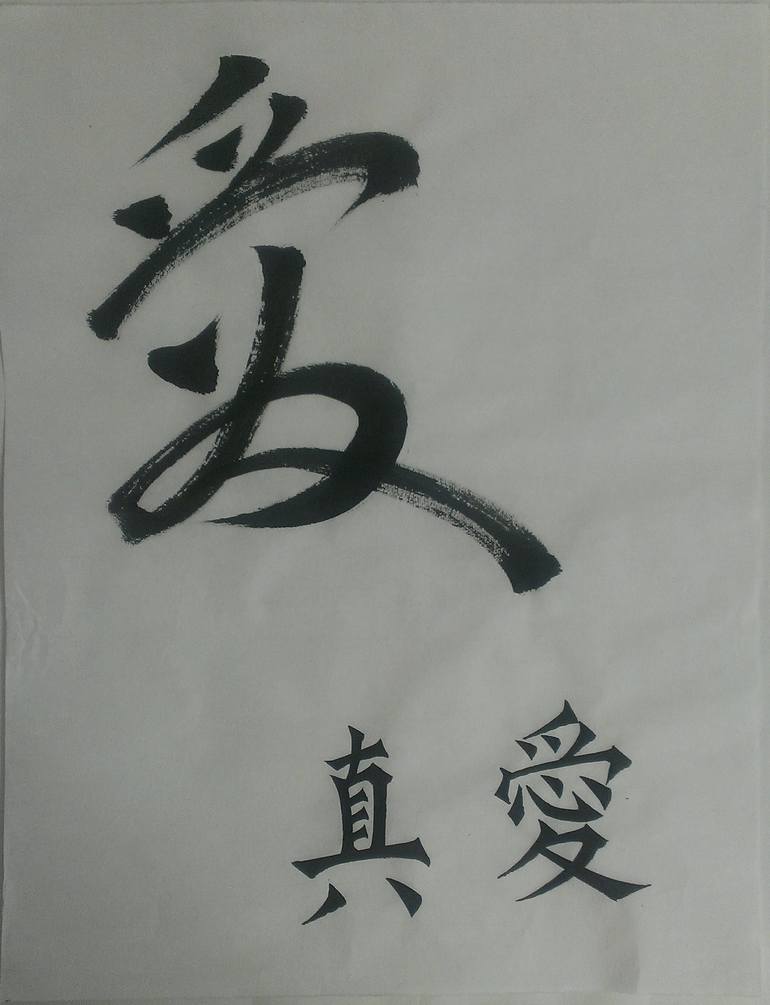 愛
真愛